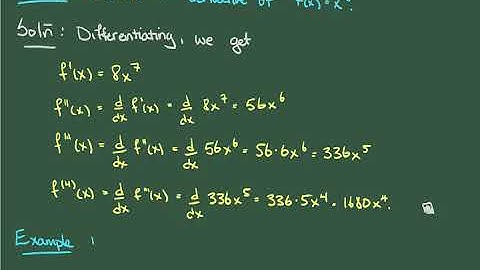 derivative of f(x)=x⁸.
Soln: Differentiating, we get
f'(x) = 8x⁷
f''(x) = d/dx f'(x) = d/dx 8x⁷ = 56x⁶
f'''(x) = d/dx f''(x) = d/dx 56x⁶ = 56·6x⁵ = 336x⁵
f⁽⁴⁾(x) = d/dx f'''(x) = d/dx 336x⁵ = 336·5x⁴ = 1680x⁴.
Example